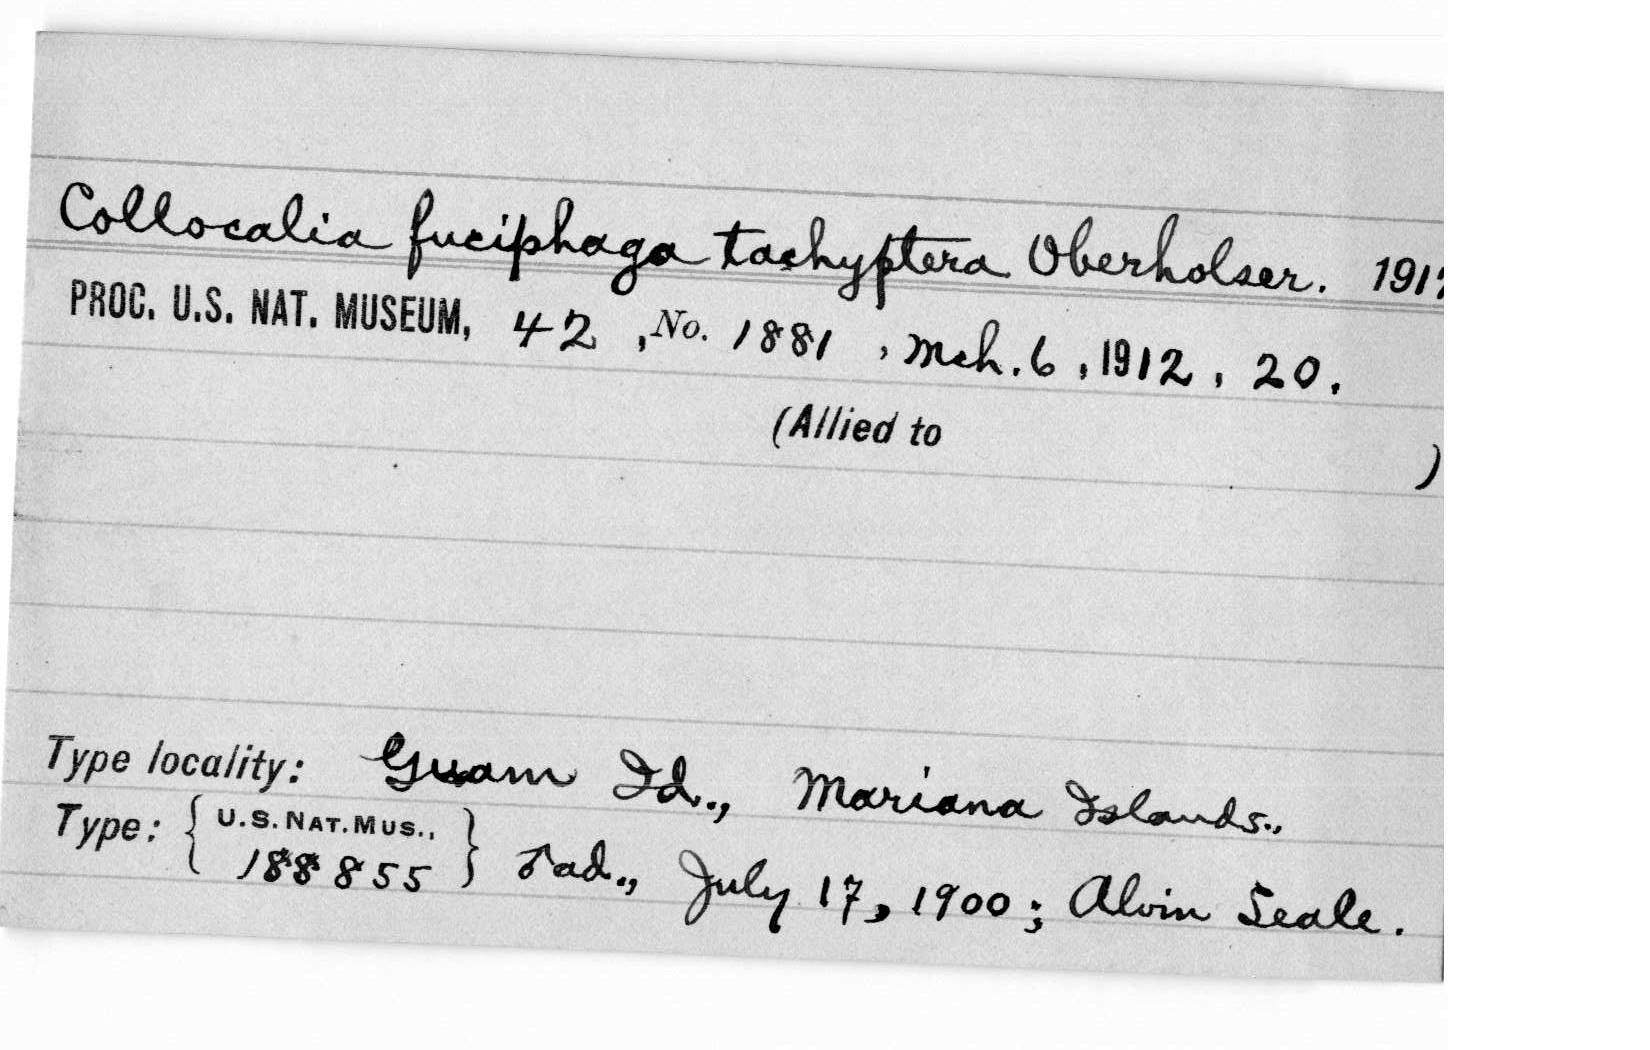 Collocalia fuciphaga tachyptera Oberholser. 191
PROC. U.S. NAT. MUSEUM, 42 , No. 1881 , Mch. 6 , 1912 , 20.
(Allied to )
Type locality: Guam Id., Mariana Islands.,
Type: { U.S. NAT. MUS., 188855 } ♂ ad., July 17, 1900; Alvin Seale.